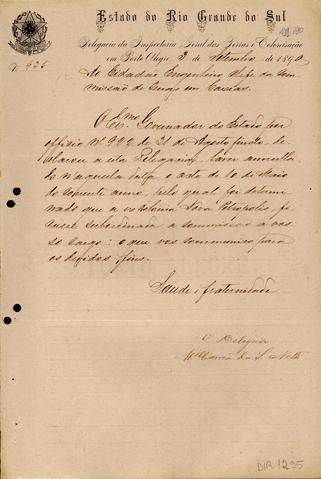 Estado do Rio Grande do Sul
Delegacia da Inspectoria Geral das Terras e Colonisação
em Porto Alegre 3 de Setembro de 1890
N. 925
Ao Cidadão Engenheiro Chefe da Com
missão de Terras em Caxias.
O Ex.mo Governador do Estado por
officio Nº 922 de 21 de Agosto findo, de
clarou a esta Delegacia, haver annulla
do naquella data o acto de 10 de Maio
do corrente anno, pelo qual foi determi
nado que a ex colonia Nova Petropolis, fi
casse subordinada a Commissão a vos
so cargo: o que vos communico para
os devidos fins.
Saude e fraternidade
O Delegado
DIR 1295